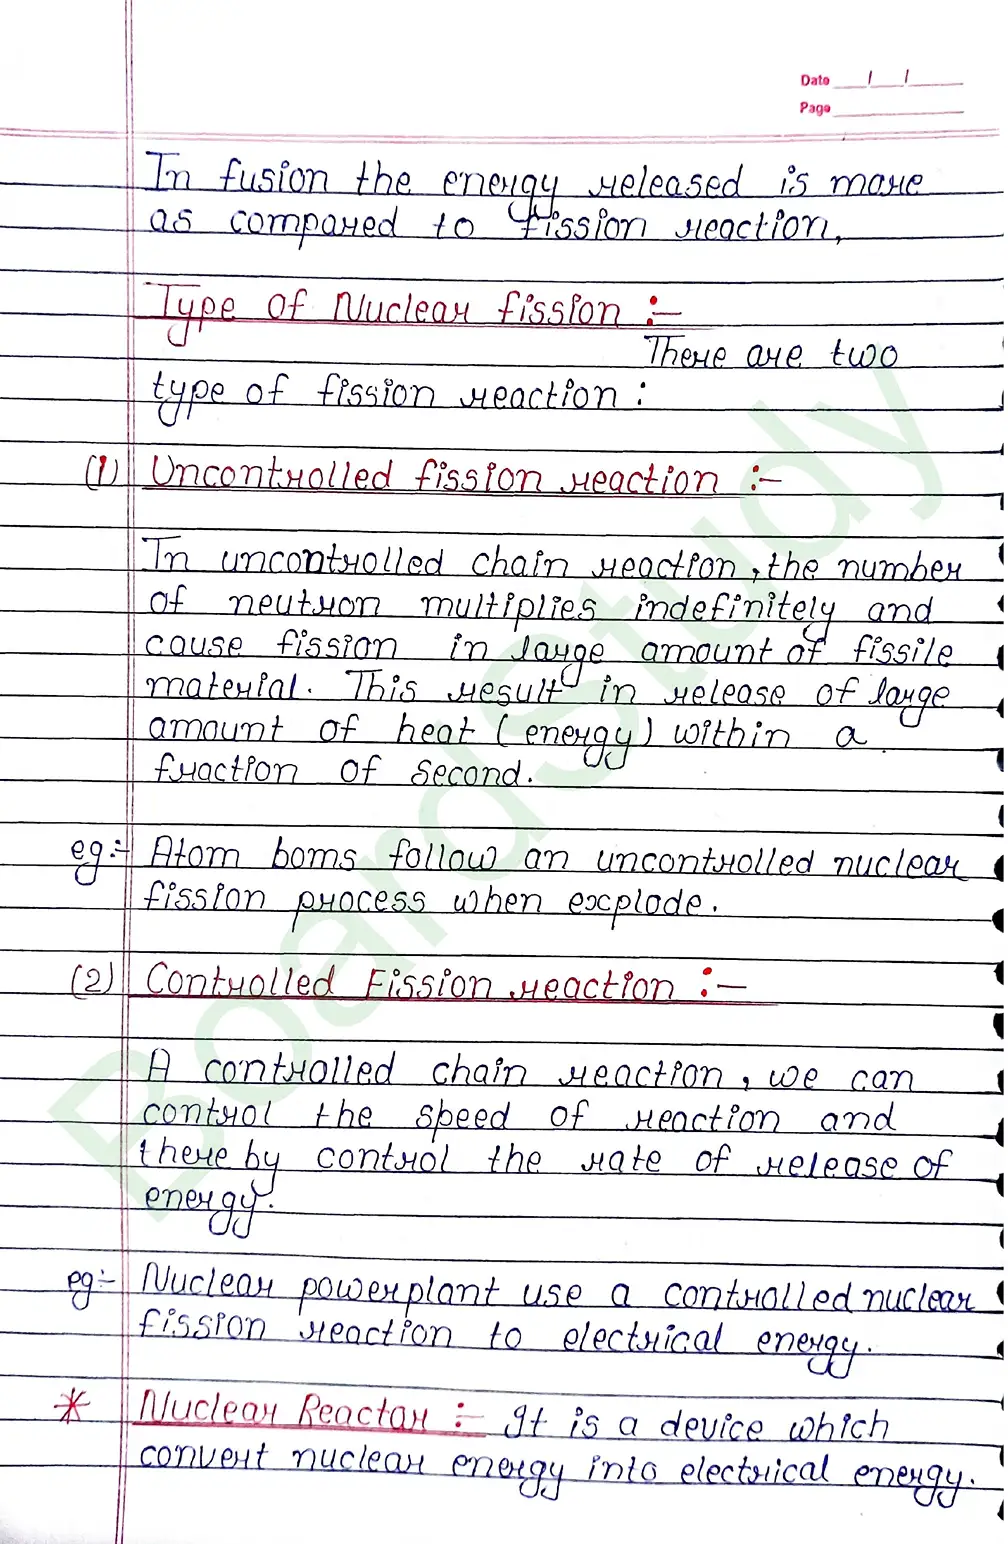 Date __/__/____
Page
In fusion the energy released is more
as compared to fission reaction,
Type of Nuclear fission :-
There are two
type of fission reaction :
(1) Uncontrolled fission reaction :-
In uncontrolled chain reaction, the number
of neutron multiplies indefinitely and
cause fission in large amount of fissile
material. This result in release of large
amount of heat (energy) within a
fraction of second.
eg:- Atom boms follow an uncontrolled nuclear
fission process when explode.
(2) Controlled Fission reaction :-
A controlled chain reaction, we can
control the speed of reaction and
there by control the rate of release of
energy.
eg:- Nuclear powerplant use a controlled nuclear
fission reaction to electrical energy.
* Nuclear Reactor :- It is a device which
convert nuclear energy into electrical energy.
BoardStudy